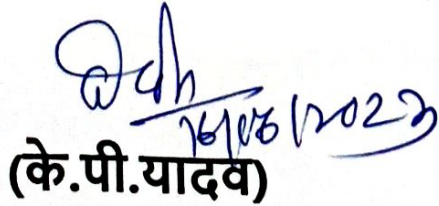 16/06/2023
(के.पी.यादव)